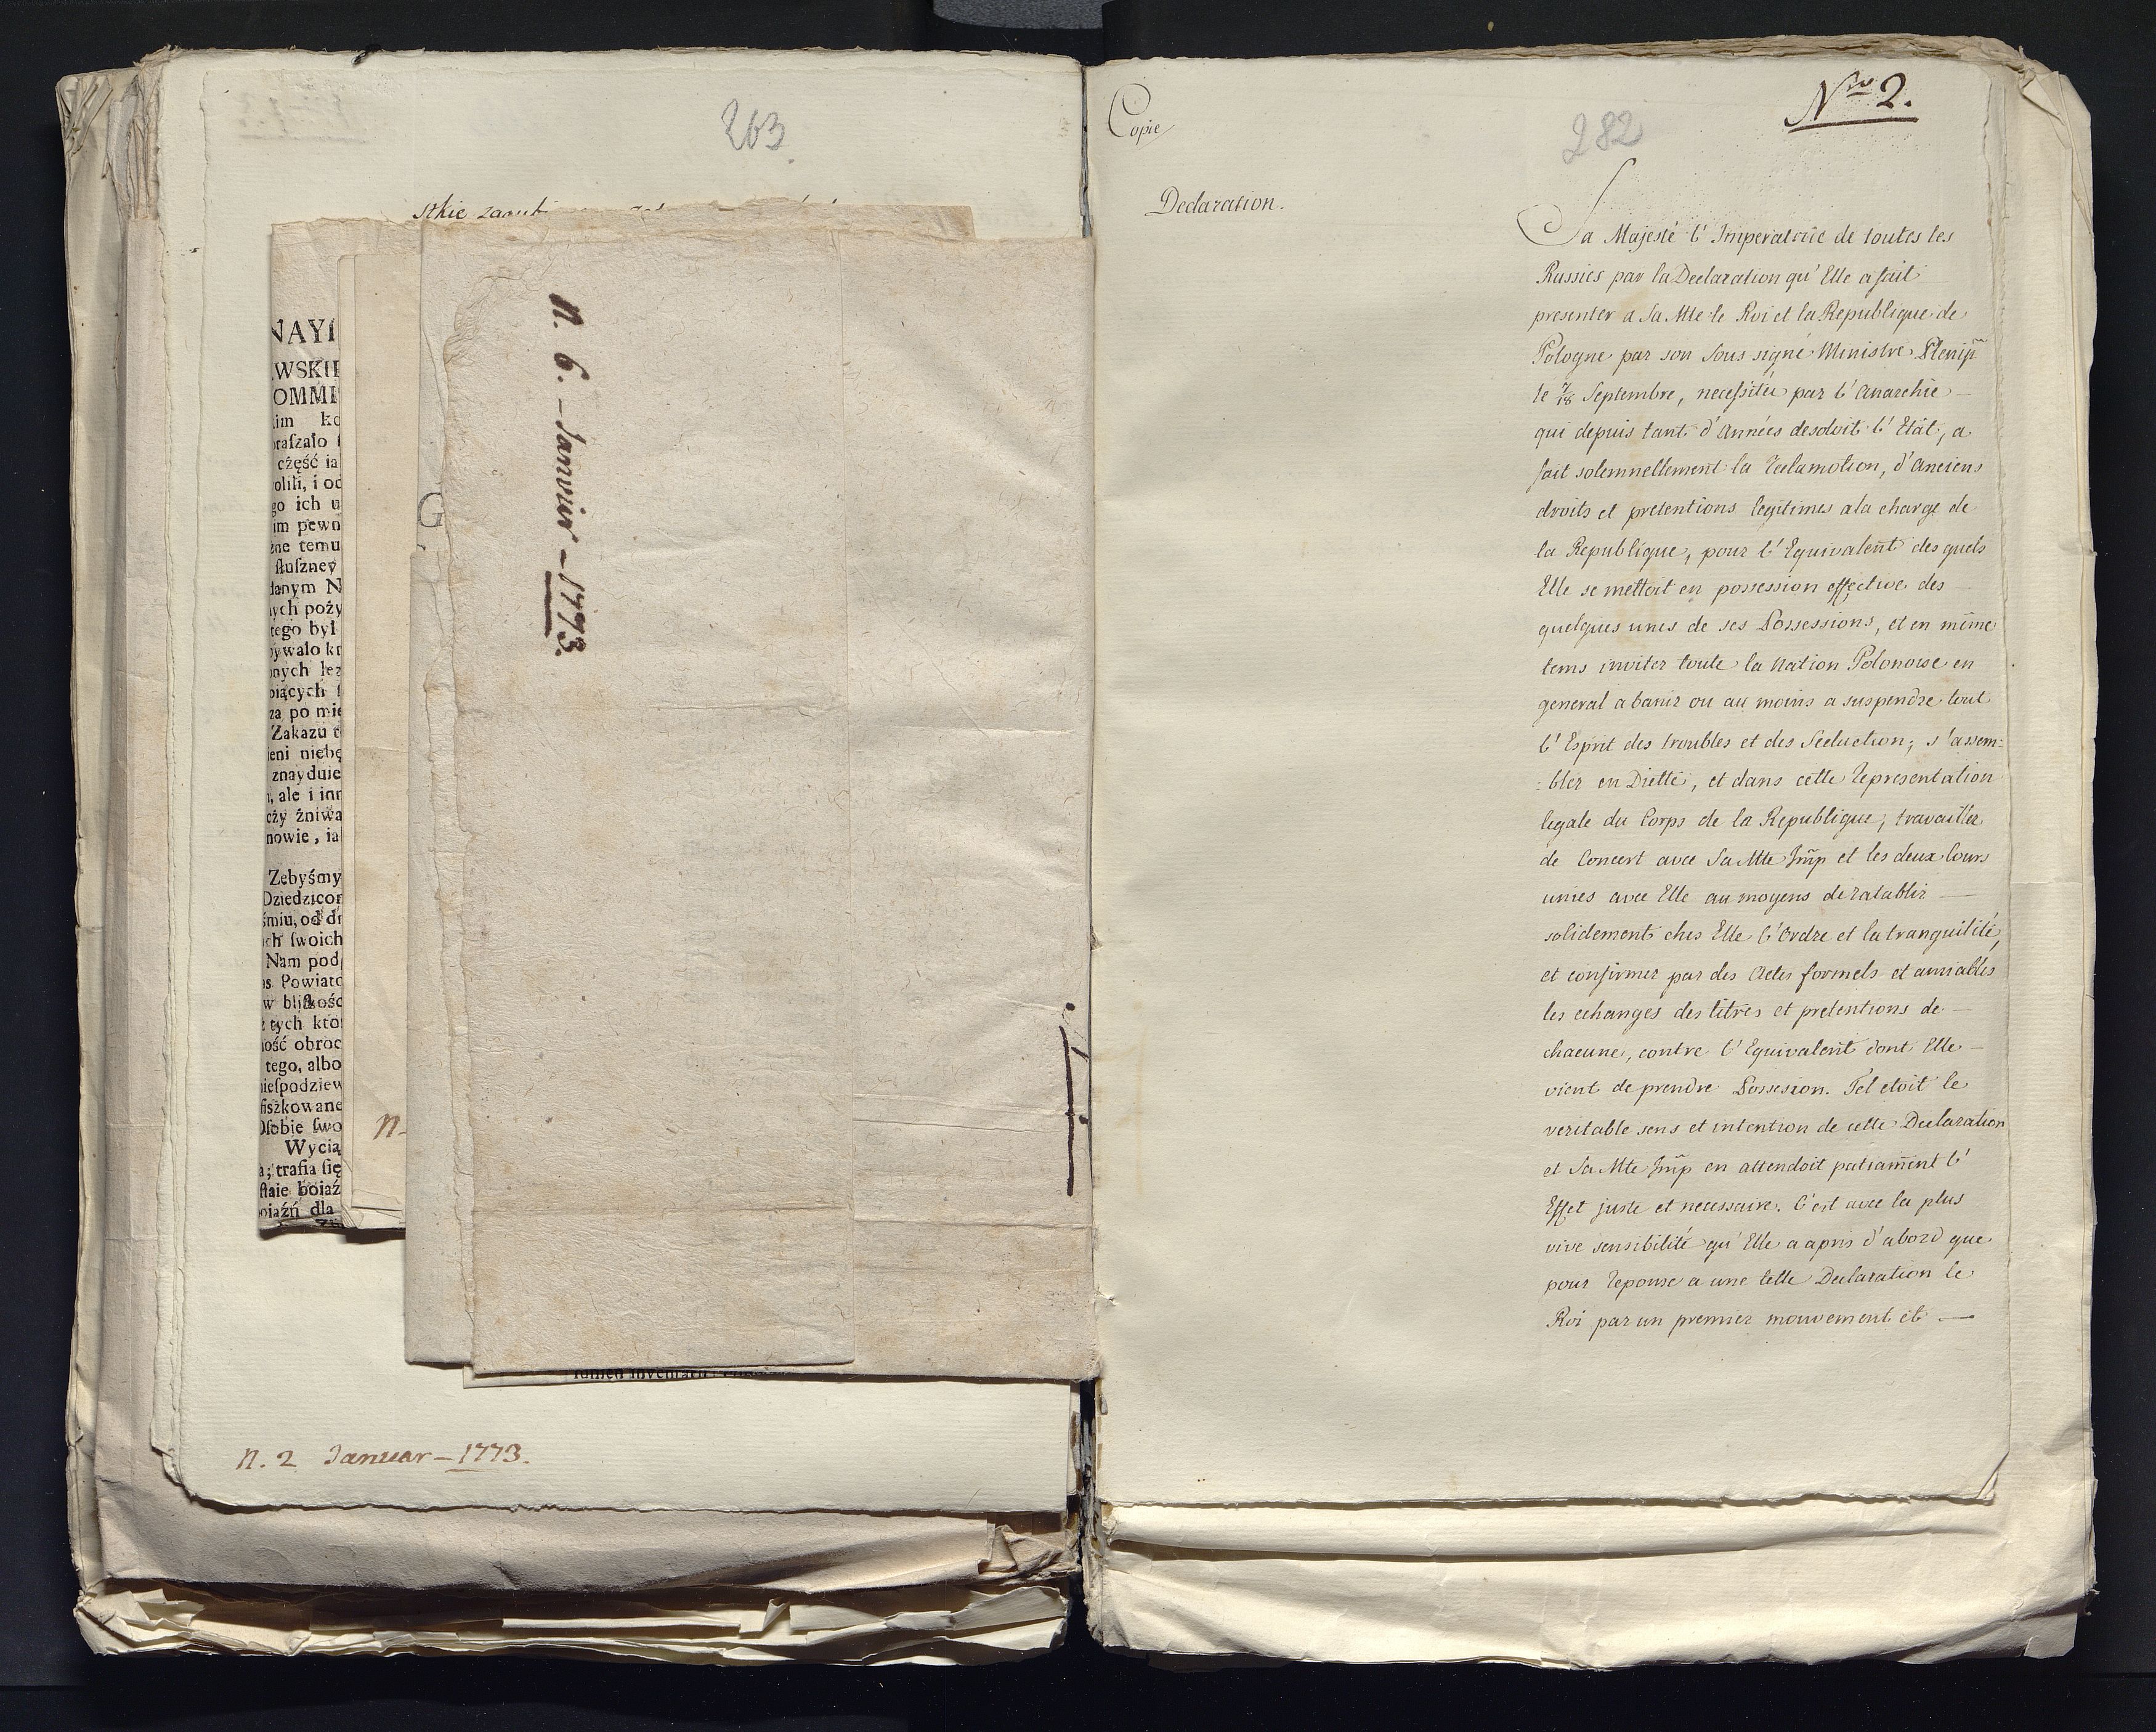 263.
Stkie
NAYI
WSKIE
OMMI
kim ko
praſzało
część ia
olili, i od
go ich u
im pewn
żne temu
ſłuſzney
danym N
ych poży
tego był
bywało kr
onych lez
biących
za po mie
Zakazu
ieni niebę
znayduie
, ale i inn
cży żniwa
nowie, ia
Zebyśmy
Dziedzicon
śmiu, od dr
ch ſwoich
Nam pod
as Powiato
w bliſkość
z tych kto
ność obroc
tego, albo
nieſpodziew
fiszkowane
Oſobie ſwo
Wycią
a; trafia ſię
ſtaie boiaź
boiaźń dla
G
n-
n. 6. - Janvier - 1773.
n. 2 Januar - 1773.
Copie
282
Nro 2.
Declaration.
Sa Majesté l' Imperatrice de toutes les
Russies par la Declaration qu' Elle a fait
presenter a Sa Mte le Roi et la Republique de
Pologne par son Sous signé Ministre Plenip
le 7/18 Septembre, necessitée par l' Anarchie
qui depuis tant d' Années desoloit l' Etat, a
fait solemnellement la reclamation, d' Anciens
droits et pretentions legitimes a la charge de
la Republique, pour l' Equivalent des quels
Elle se mettoit en possession effective des
quelques unes de ses Possessions, et en même
tems inviter toute la Nation Polonoise en
general a banir ou au moins a suspendre tout
l' Esprit des troubles et des Seduction; s' assem=
=bler en Diette, et dans cette representation
legale du Corps de la Republique, travailler
de Concert avec Sa Mte Imp et les deux Cours
unies avec Elle au moyens de ratablir —
solidement ches Elle l' Ordre et la tranquilité,
et confirmer par des Actes formels et amiables
les echanges des titres et pretentions de —
chacune, contre l' Equivalent dont Elle —
vient de prendre Possesion. Tel etoit le
veritable sens et intention de cette Declaration
et Sa Mte Imp en attendoit patiament l'
Effet juste et necessaire. C' est avec la plus
vive sensibilité qu' Elle a apris d' abord que
pour reponse a une telle Declaration le
Roi par un premier mouvement et —